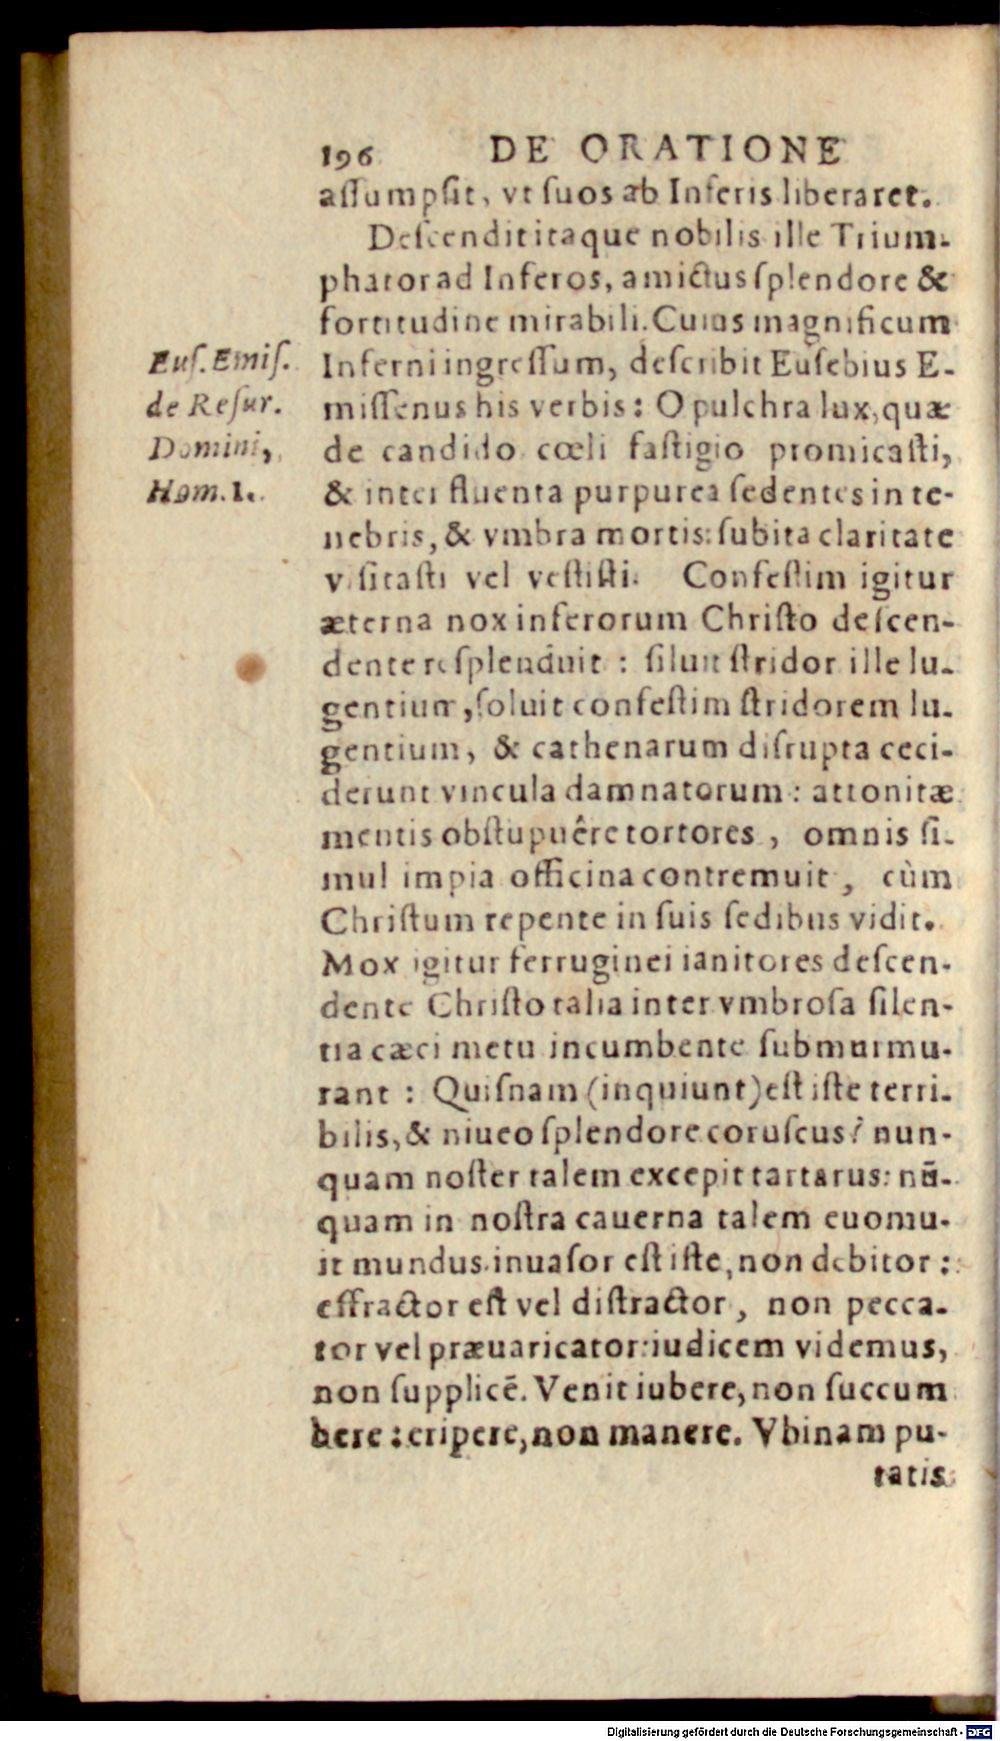 196 DE ORATIONE
aſſumpſit, vt ſuos ab Inferis liberaret.
Deſcendit itaque nobilis ille Trium-
phator ad Inferos, amictus ſplendore &
fortitudine mirabili. Cuius magnificum
Inferni ingreſſum, deſcribit Euſebius E-
miſſenus his verbis: O pulchra lux, quæ
de candido cœli faſtigio promicaſti,
& inter fluenta purpurea ſedentes in te-
nebris, & vmbra mortis: ſubita claritate
viſitaſti vel veſtiſti. Confeſtim igitur
æterna nox inferorum Chriſto deſcen-
dente reſplenduit : ſiluit ſtridor ille lu-
gentium, ſoluit confeſtim ſtridorem lu-
gentium, & cathenarum diſrupta ceci-
derunt vincula damnatorum: attonitæ
mentis obſtupuêre tortores, omnis ſi-
mul impia officina contremuit, cùm
Chriſtum repente in ſuis ſedibus vidit.
Mox igitur ferruginei ianitores deſcen-
dente Chriſto talia inter vmbroſa ſilen-
tia cæci metu incumbente ſubmurmu-
rant : Quiſnam (inquiunt) eſt iſte terri-
bilis, & niueo ſplendore coruſcus? nun-
quam noſter talem excepit tartarus: nū-
quam in noſtra cauerna talem euomu-
it mundus. inuaſor eſt iſte, non debitor :
effractor eſt vel diſtractor, non pecca-
tor vel præuaricator: iudicem videmus,
non ſupplicē. Venit iubere, non ſuccum
bere: eripere, non manere. Vbinam pu-
tatis
Euſ. Emiſ.
de Reſur.
Domini,
Hom. 1.
Digitalisierung gefördert durch die Deutsche Forschungsgemeinschaft - DFG